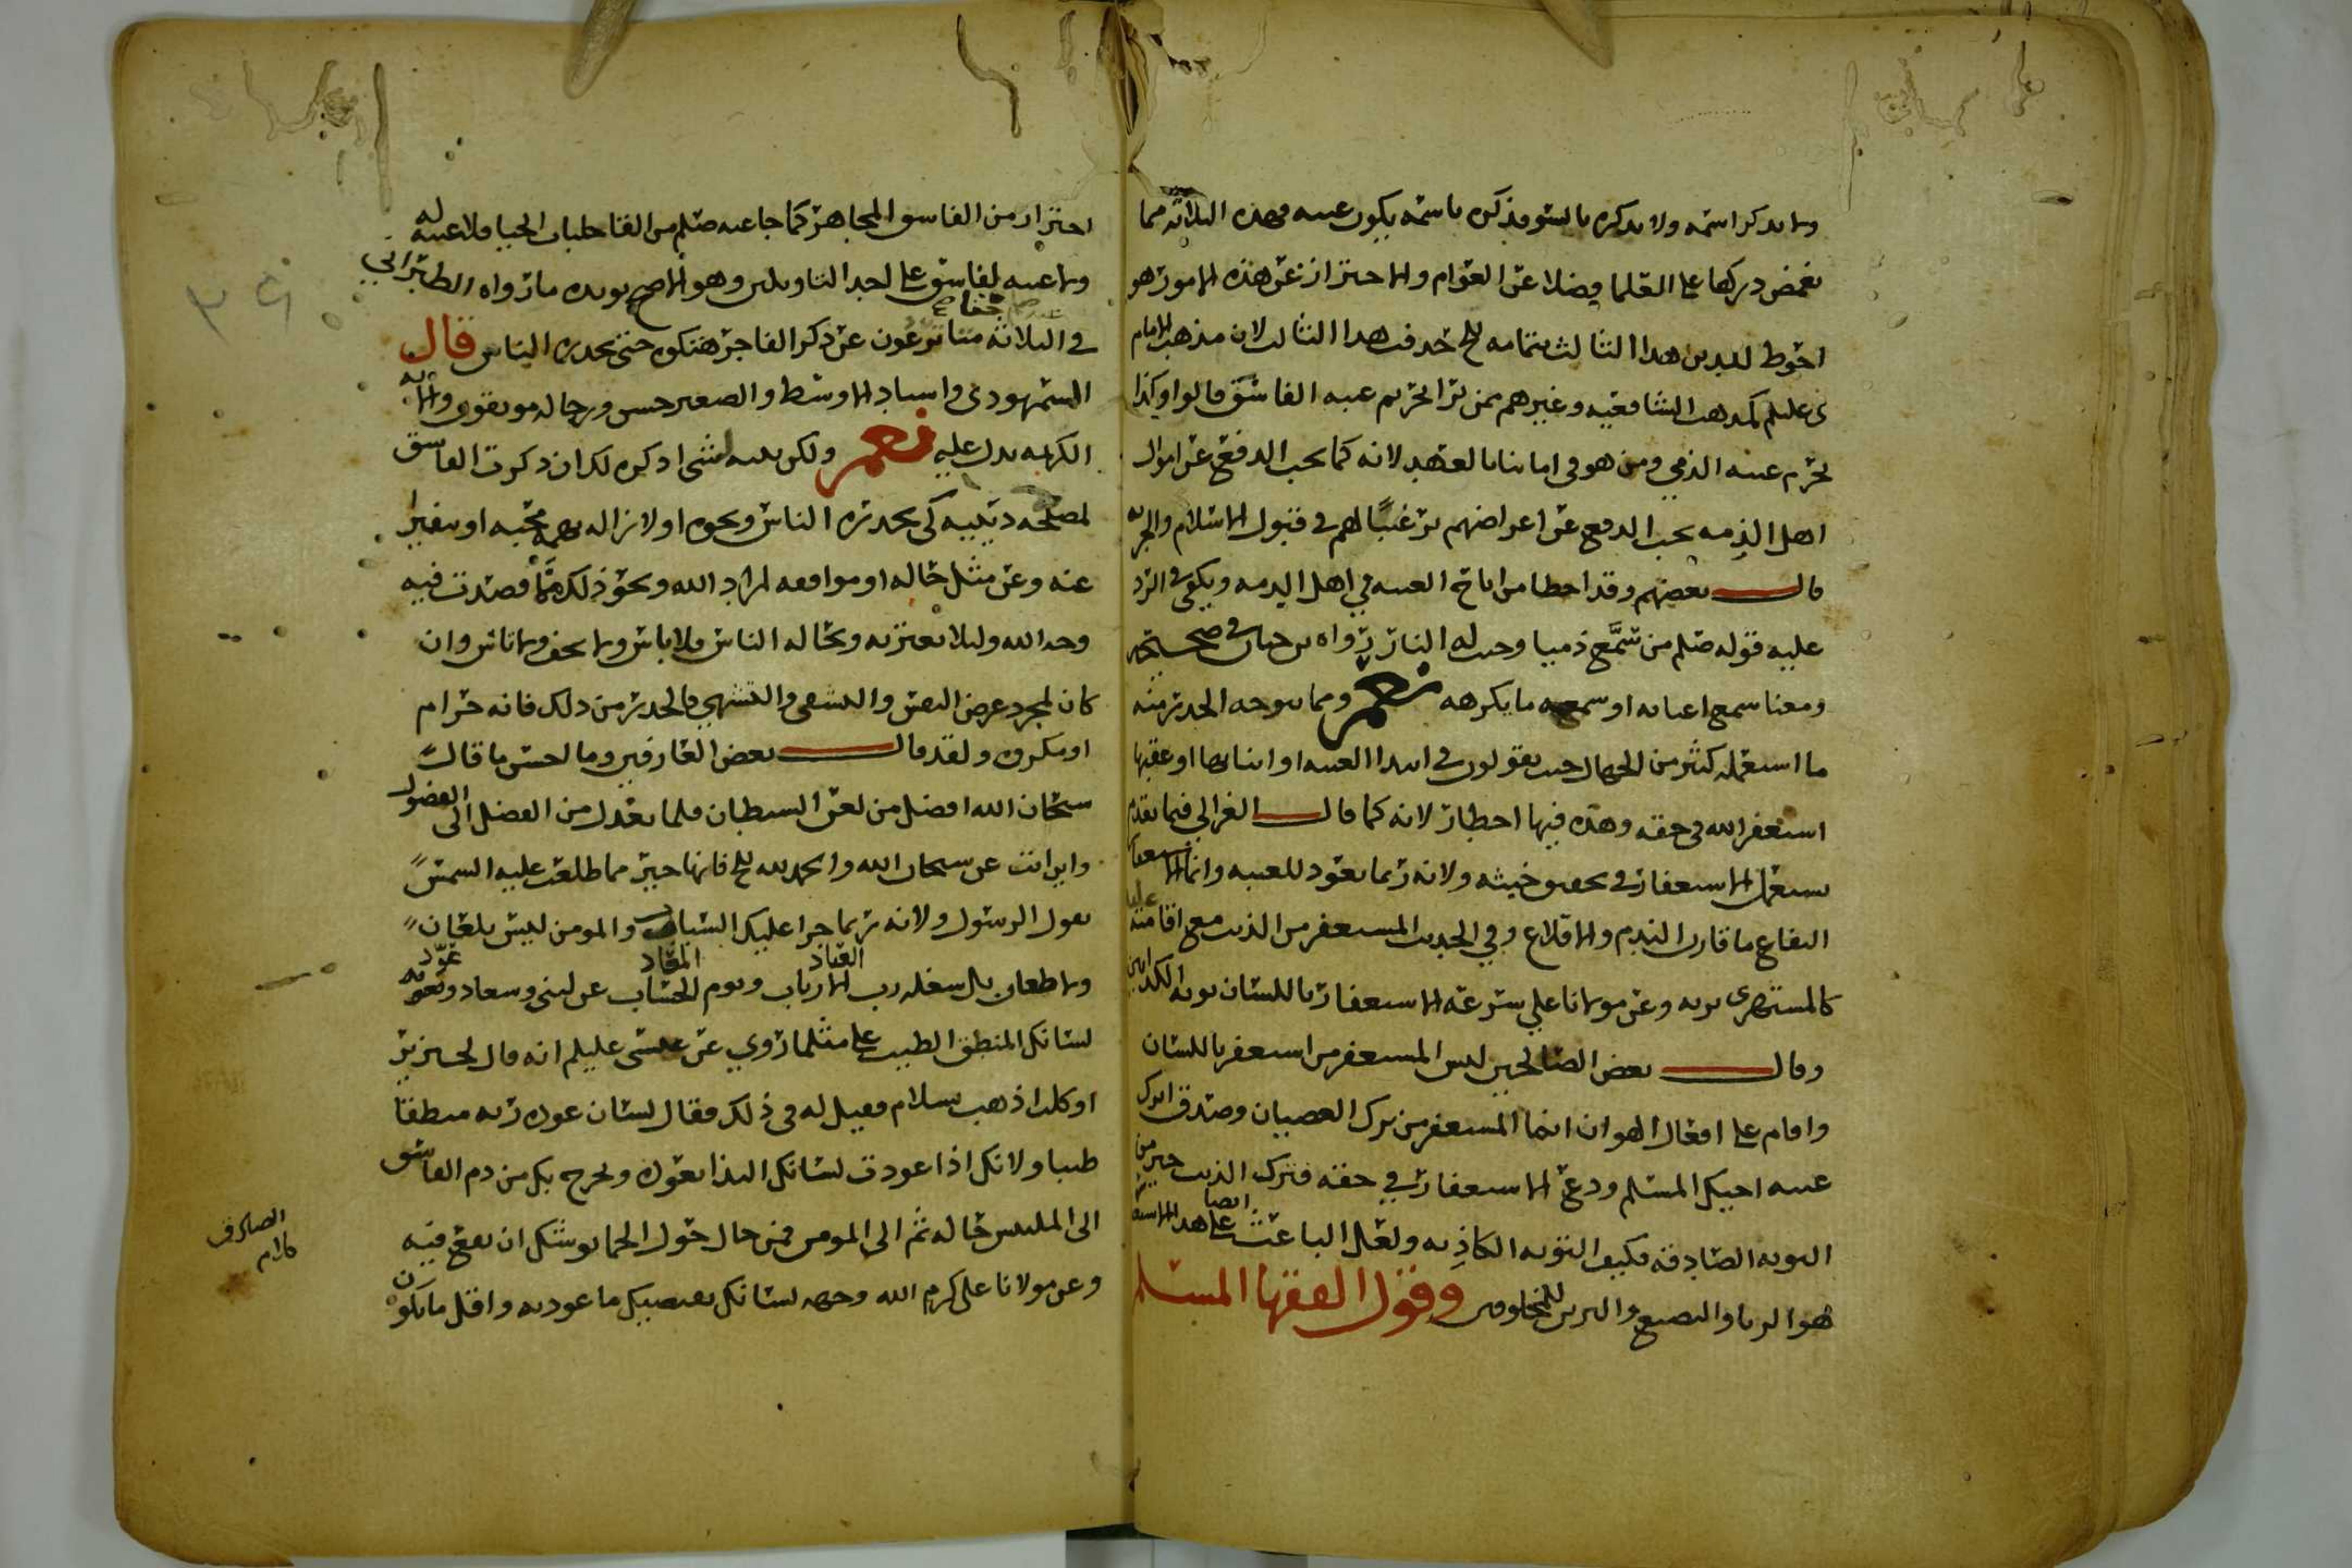 ولا يذكر اسمه ولا يذكره بالسوء فذكره باسمه يكون غيبه فهذه الثلاثه مما
يغمض دركها على العلما فضلا عن العوام والاحتراز عن هذه الامور هو
احوط للدين هذا الثالث بتمامه حذفت هذا الثالث لان مذهب الامام
ى عليلم كمذهب الشافعيه وغيرهم ممن يرا تحريم غيبه الفاسق قالوا وكذا
تحرم غيبه الذمي ومن هو في اماننا بالعهد لانه كما يجب الدفع عن اموال
اهل الذمه يجب الدفع عن اعراضهم ترغيبًا لهم في قبول الاسلام والجزيه
قال بعضهم وقد اخطا من اباح الغيبه في اهل الذمه ويكفي في الرد
عليه قوله صلم من سمَّع ذميا وجبت له النار رواه بن حبان في صحيحه
ومعنا سمع اغتابه او سمعه ما يكرهه نعم ومما يتوجه الحذر منه
ما استعمله كثير من الجهال حيث يقولون في ابتدا الغيبه او اثنائها او عقبها
استغفر الله في حقه وهذه فيها اخطار لانه كما قال الغزالي فيما تقدم
يستعمل الاستغفار في تحقيق خبثه ولانه ربما يعود للغيبه وانما الاستغفار
النفاع ما قارن الندم والاقلاع وفي الحديث المستغفر من الذنب مع اقامته عليه
كالمستهزي بربه وعن مولانا علي سرعه الاستغفار باللسان توبه الكذابين
وقال بعض الصالحين ليس المستغفر من استغفر باللسان
واقام على افعال الهوان انما المستغفر من ترك العصيان وصدق اترك
غيبه اخيك المسلم ودع الاستغفار في حقه فترك الذنب خير من
التوبه الصادقه فكيف التوبه الكاذبه ولعل الباعث ايضا على هذا الاستغفار
هو الريا والتصنع والتزين للمخلوقين وقول الفقها المسلم
احتراز من الفاسق المجاهر كما جا عنه صلم من القا جلباب الحيا فلا غيبه له
ولا غيبه لفاسق على احد التاويلين وهو الاصح يويده ما رواه الطبراني
في الثلاثه متا ترعون عن ذكر الفاجر هتكوه حتى يحذره الناس قال
السمهودي واسناد الاوسط والصغير حسن ورجاله موثقون والآيه
الكريمه يدل عليه نعم ولكن بنيه لشي اذكره لك ان ذكرت الفاسق
لمصلحه دينيه كي يحذره الناس ونحوه او لازاله تهمه محبه او تنفيرا
عنه وعن مثل حاله او موافقه لمراد الله ونحو ذلك مما قصدت فيه
وجه الله وليلا يغتر به وبحاله الناس فلا باس ولا تخف ولا تاس وان
كان لمجرد غرض النفس والتشفي والتشهي فالحذر من ذلك فانه حرام
او مكروه ولقد قال بعض العارفين وما احسن ما قال
سبحان الله افضل من لعن الشيطان فلما تعدل من الفضل الى الفضول
واين انت عن سبحان الله والحمد لله فانها خير مما طلعت عليه الشمس
بقول الرسول ولانه ربما جرا عليك السباب والمومن ليس بلعان
ولا طعان بل شغله رب الارباب ويوم الحساب عن لبنى وسعاد وعود
العباد
المعاد
لسانك المنطق الطيب على مثلما روي عن عيسى عليلم انه قال لخنزير
او كلب اذهب بسلام فقيل له في ذلك فقال لسان عوده ربه منطقا
طيبا ولانك اذا عودت لسانك البذا تعوده ويخرج بك من ذم الفاسق
الى الملتبس حاله ثم الى المومن فمن حال حول الحما يوشك ان يقع فيه
وعن مولانا علي كرم الله وجهه لسانك يقتضيك ما عودته واقل ما يكون